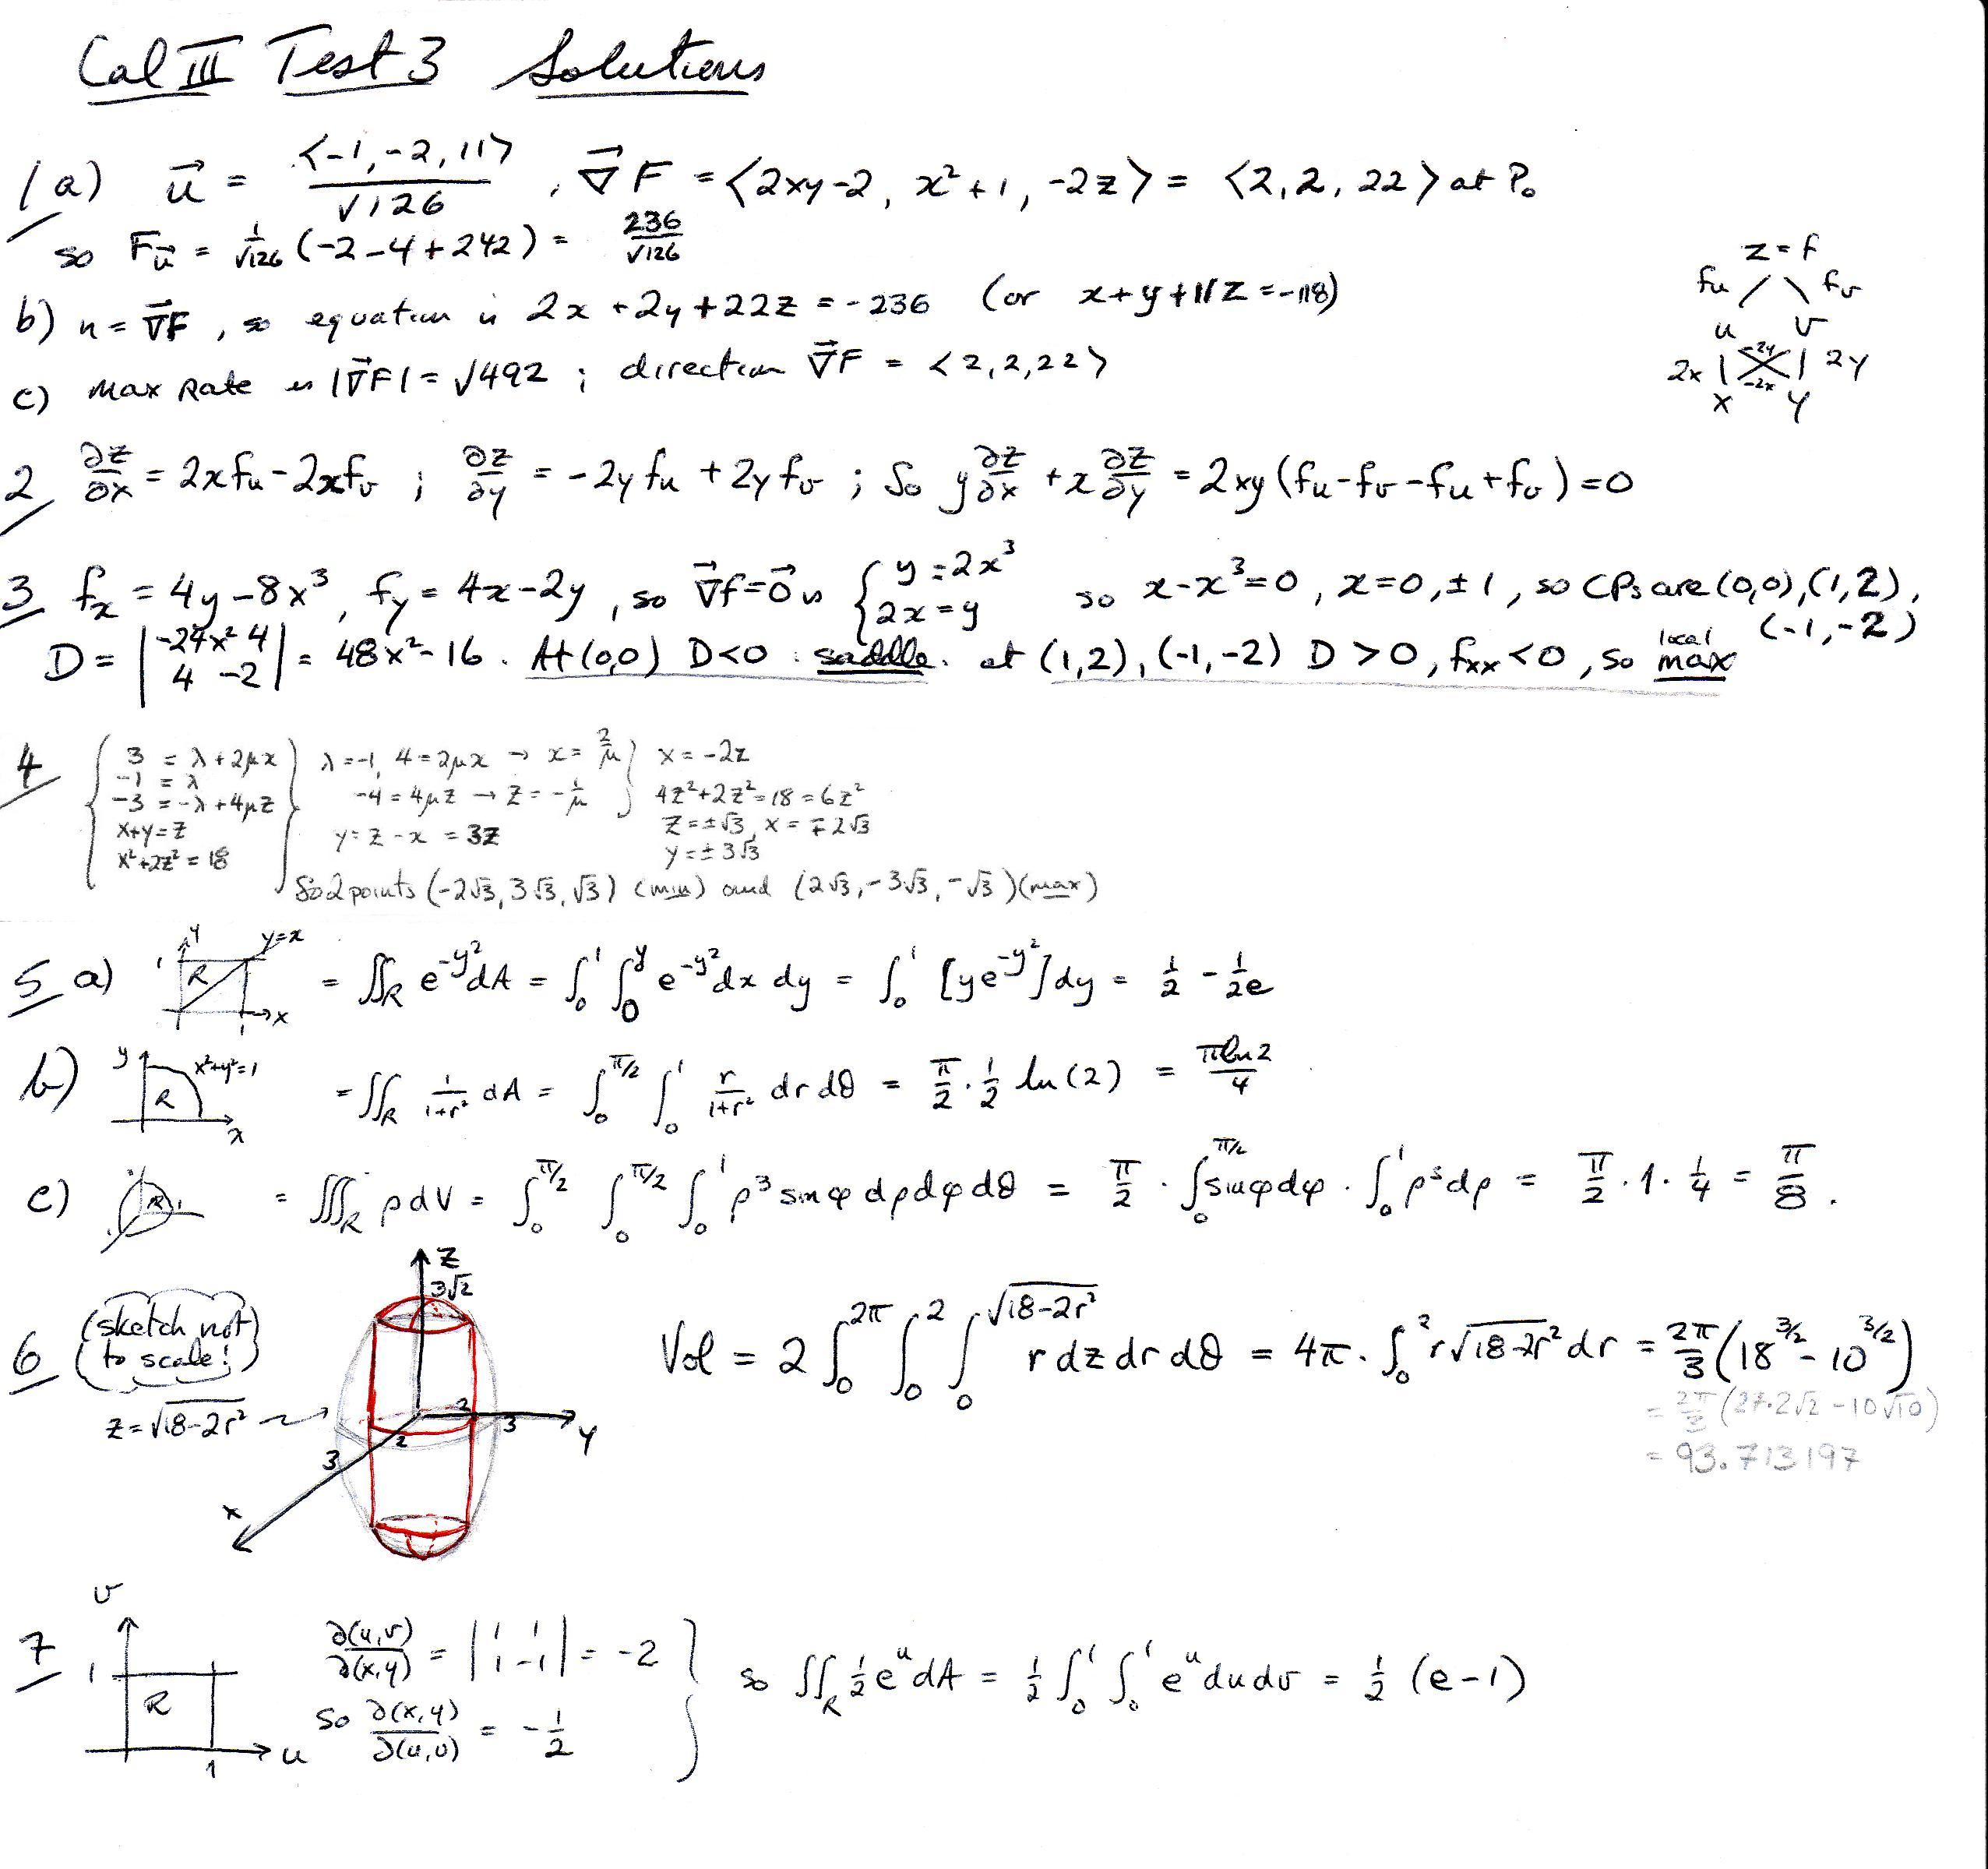 Cal III Test 3 Solutions
1 a) u⃗ = <-1, -2, 11> / √126 , ∇⃗F = <2xy-2, x²+1, -2z> = <2, 2, 22> at P₀
so F_u⃗ = 1/√126 (-2-4+242) = 236/√126
b) n = ∇⃗F, so equation is 2x+2y+22z = -236 (or x+y+11z = -118)
c) Max Rate is |∇⃗F| = √492 ; direction ∇⃗F = <2,2,22>
z = f
fu fv
u v
2x -2y -2x 2y
x y
2 ∂z/∂x = 2xfu - 2xfv ; ∂z/∂y = -2yfu + 2yfv ; So y∂z/∂x + x∂z/∂y = 2xy(fu-fv-fu+fv) = 0
3 fx = 4y-8x³, fy = 4x-2y, so ∇⃗f=0⃗ is { y=2x³ so x-x³=0, x=0,±1, so CPs are (0,0), (1,2),
2x=y (-1,-2)
D = |-24x² 4| = 48x²-16. At (0,0) D<0 : saddle. at (1,2), (-1,-2) D>0, fxx<0, so local max
|4 -2|
4 { 3 = λ+2μx } λ=-1, 4=2μx → x=2/μ } x=-2z
-1 = λ
-3 = -λ+4μz -4=4μz → z=-1/μ 4z²+2z²=18=6z²
x+y=z y=z-x=3z z=±√3, x=∓2√3
x²+2z²=18 y=±3√3
So 2 points (-2√3, 3√3, √3) (min) and (2√3, -3√3, -√3) (max)
5 a) y y=x 1 R 1 x = ∬_R e^(-y²) dA = ∫₀¹ ∫₀^y e^(-y²) dx dy = ∫₀¹ [ye^(-y²)] dy = 1/2 - 1/2e
b) y x²+y²=1 R x = ∬_R 1/(1+r²) dA = ∫₀^(π/2) ∫₀¹ r/(1+r²) dr dθ = π/2 · 1/2 ln(2) = π ln 2/4
c) R 1 = ∭_R ρ dV = ∫₀^(π/2) ∫₀^(π/2) ∫₀¹ ρ³ sin φ dρ dφ dθ = π/2 · ∫₀^(π/2) sin φ dφ · ∫₀¹ ρ³ dρ = π/2 · 1 · 1/4 = π/8 .
6 (sketch not
to scale!)
z = √(18-2r²)
z
3√2
2 3 y
2
3
x
Vol = 2 ∫₀^(2π) ∫₀² ∫₀^√(18-2r²) r dz dr dθ = 4π · ∫₀² r√(18-2r²) dr = 2π/3 (18^(3/2) - 10^(3/2))
= 2π/3 (27·2√2 - 10√10)
= 93.713197
7 v 1 R 1 u
∂(u,v)/∂(x,y) = |1 1; 1 -1| = -2 }
so ∂(x,y)/∂(u,v) = -1/2
so ∬_R 1/2 e^u dA = 1/2 ∫₀¹ ∫₀¹ e^u du dv = 1/2 (e-1)